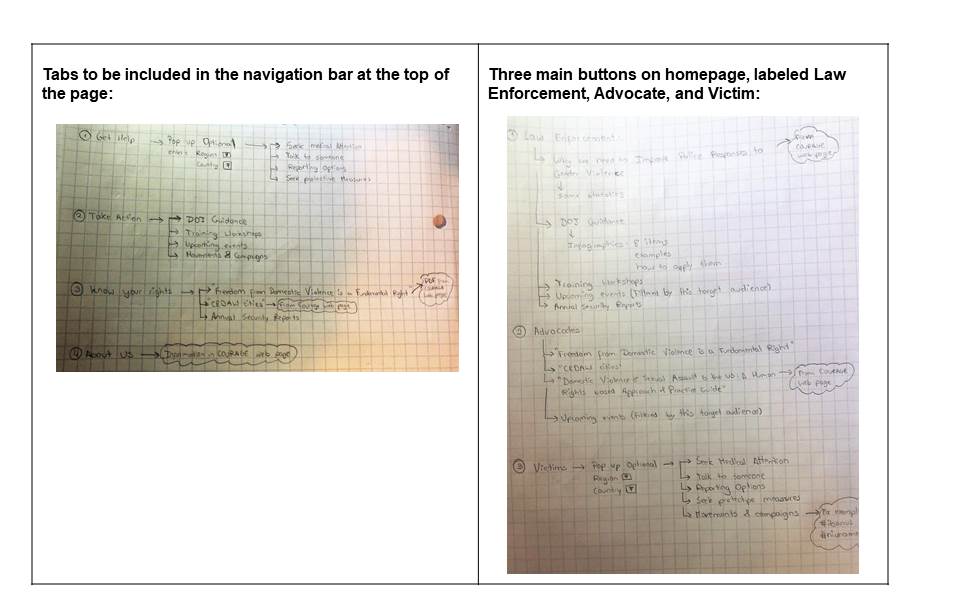 Tabs to be included in the navigation bar at the top of
the page:
① Get Help → Pop up Optional
Region
Country
→ Seek medical Attention
→ Talk to someone
→ Reporting Options
→ Seek protective Measures
② Take Action → DOJ Guidance
→ Training Workshops
→ Upcoming events
→ Movements & Campaigns
③ Know your rights → Freedom from Domestic Violence is a Fundamental Right
PDF from
COURAGE
web page
→ "CEDAW cities" → From COURAGE web page
→ Annual Security Reports
④ About US → Information in COURAGE web page
Three main buttons on homepage, labeled Law
Enforcement, Advocate, and Victim:
① Law Enforcement:
→ Why we need to Improve Police Responses to
Gender Violence
From
COURAGE
web page
↓
some statistics
→ DOJ Guidance
↓
Infographics: 8 items
examples
how to apply them
→ Training Workshops
→ Upcoming events (Filtered by this target audience)
→ Annual Security Reports
② Advocates
→ "Freedom from Domestic Violence is a Fundamental Right"
→ "CEDAW cities"
→ "Domestic Violence & Sexual Assault in the US: A Human
Rights based Approach & Practice Guide"
From COURAGE
web page
→ Upcoming events (Filtered by this target audience)
③ Victims → Pop up Optional
Region
Country
→ Seek Medical Attention
→ Talk to someone
→ Reporting Options
→ Seek measures
→ Movements & campaigns